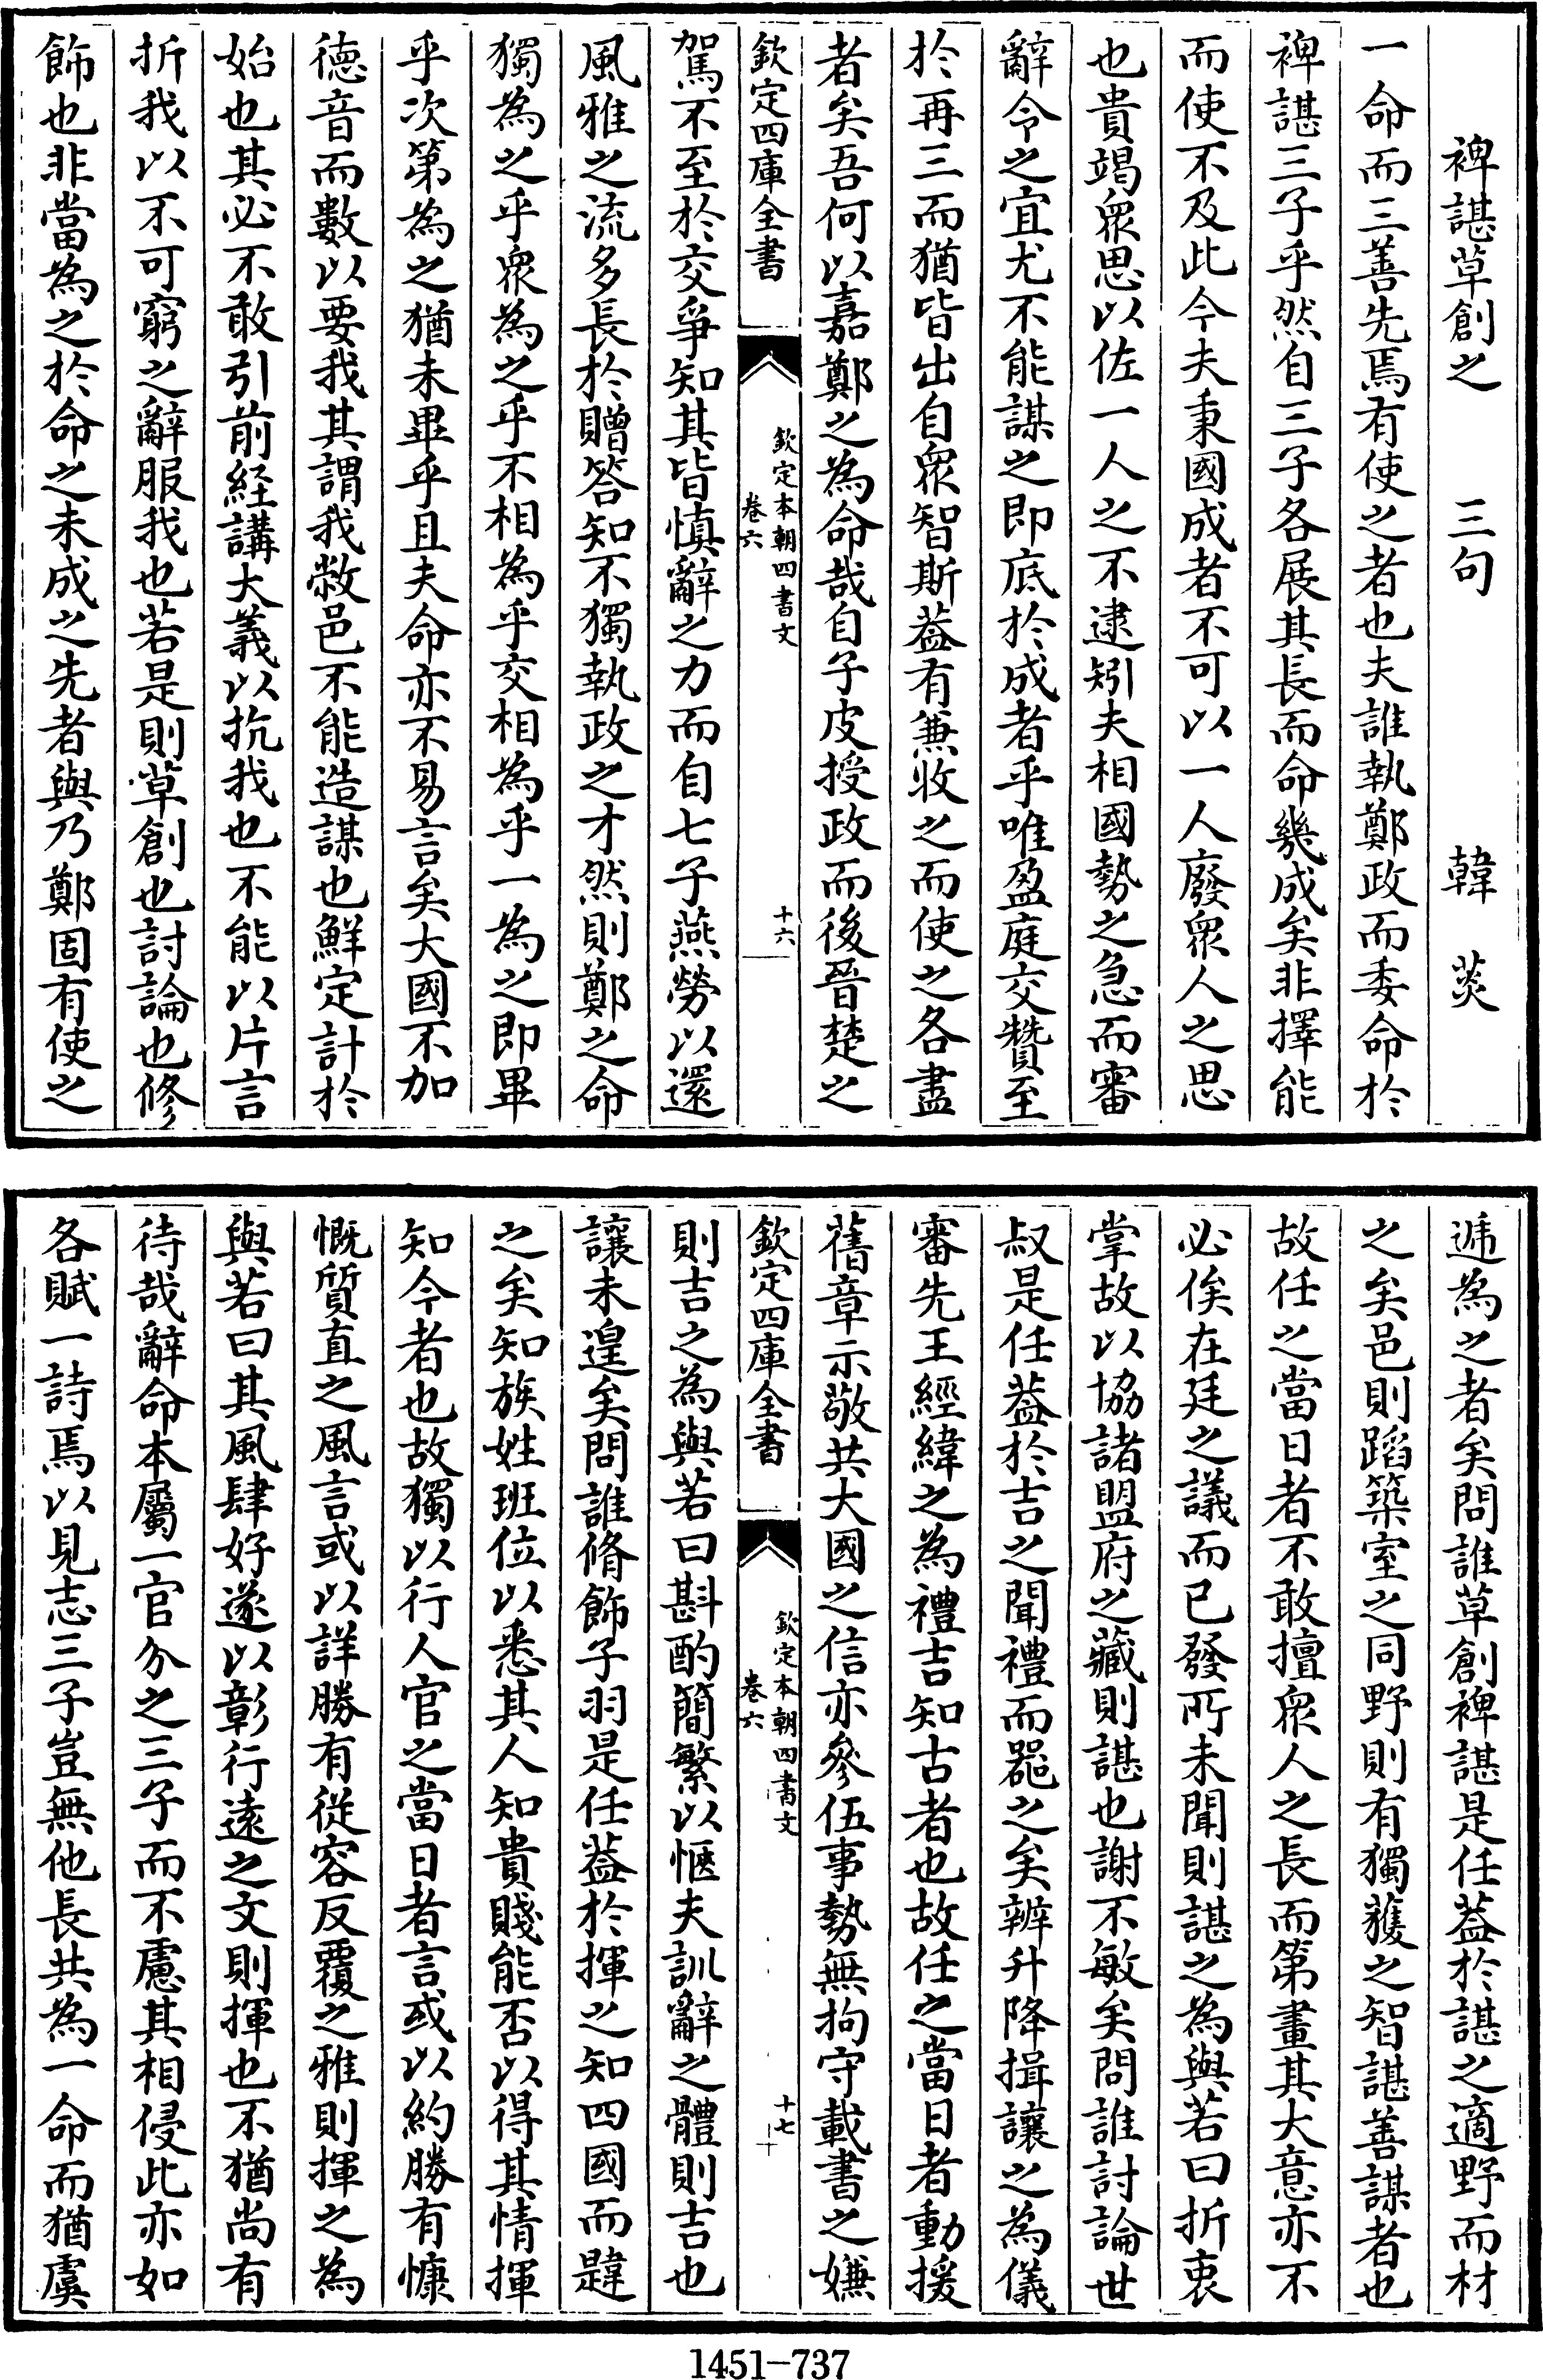 裨諶草創之 三句 韓菼
一命而三善先焉有使之者也夫誰執鄭政而委命於
裨諶三子乎然自三子各展其長而命幾成矣非擇能
而使不及此今夫秉國成者不可以一人廢衆人之思
也貴竭衆思以佐一人之不逮矧夫相國勢之急而審
辭令之宜尤不能謀之即底於成者乎唯盈庭交贊至
於再三而猶皆出自衆智斯葢有兼收之而使之各盡
者矣吾何以嘉鄭之為命哉自子皮授政而後晉楚之
欽定四庫全書
欽定本朝四書文
卷六
十六
駕不至於交爭知其皆慎辭之力而自七子燕勞以還
風雅之流多長於贈答知不獨執政之才然則鄭之命
獨為之乎衆為之乎不相為乎交相為乎一為之即畢
乎次第為之猶未畢乎且夫命亦不易言矣大國不加
德音而數以要我其謂我敝邑不能造謀也鮮定計於
始也其必不敢引前經講大義以抗我也不能以片言
折我以不可窮之辭服我也若是則草創也討論也修
飾也非當為之於命之未成之先者與乃鄭固有使之
遞為之者矣問誰草創裨諶是任葢於諶之適野而材
之矣邑則蹈築室之同野則有獨獲之智諶善謀者也
故任之當日者不敢擅衆人之長而第畫其大意亦不
必俟在廷之議而已發所未聞則諶之為與若曰折衷
掌故以協諸盟府之藏則諶也謝不敏矣問誰討論世
叔是任葢於吉之聞禮而器之矣辨升降揖讓之為儀
審先王經緯之為禮吉知古者也故任之當日者動援
舊章示敬共大國之信亦參伍事勢無拘守載書之嫌
欽定四庫全書
欽定本朝四書文
卷六
十七
則吉之為與若曰斟酌簡繁以愜夫訓辭之體則吉也
讓未遑矣問誰脩飾子羽是任葢於揮之知四國而韙
之矣知族姓班位以悉其人知貴賤能否以得其情揮
知今者也故獨以行人官之當日者言或以約勝有慷
慨質直之風言或以詳勝有從容反覆之雅則揮之為
與若曰其風肆好遂以彰行遠之文則揮也不猶尚有
待哉辭命本屬一官分之三子而不慮其相侵此亦如
各賦一詩焉以見志三子豈無他長共為一命而猶虞
1451-737